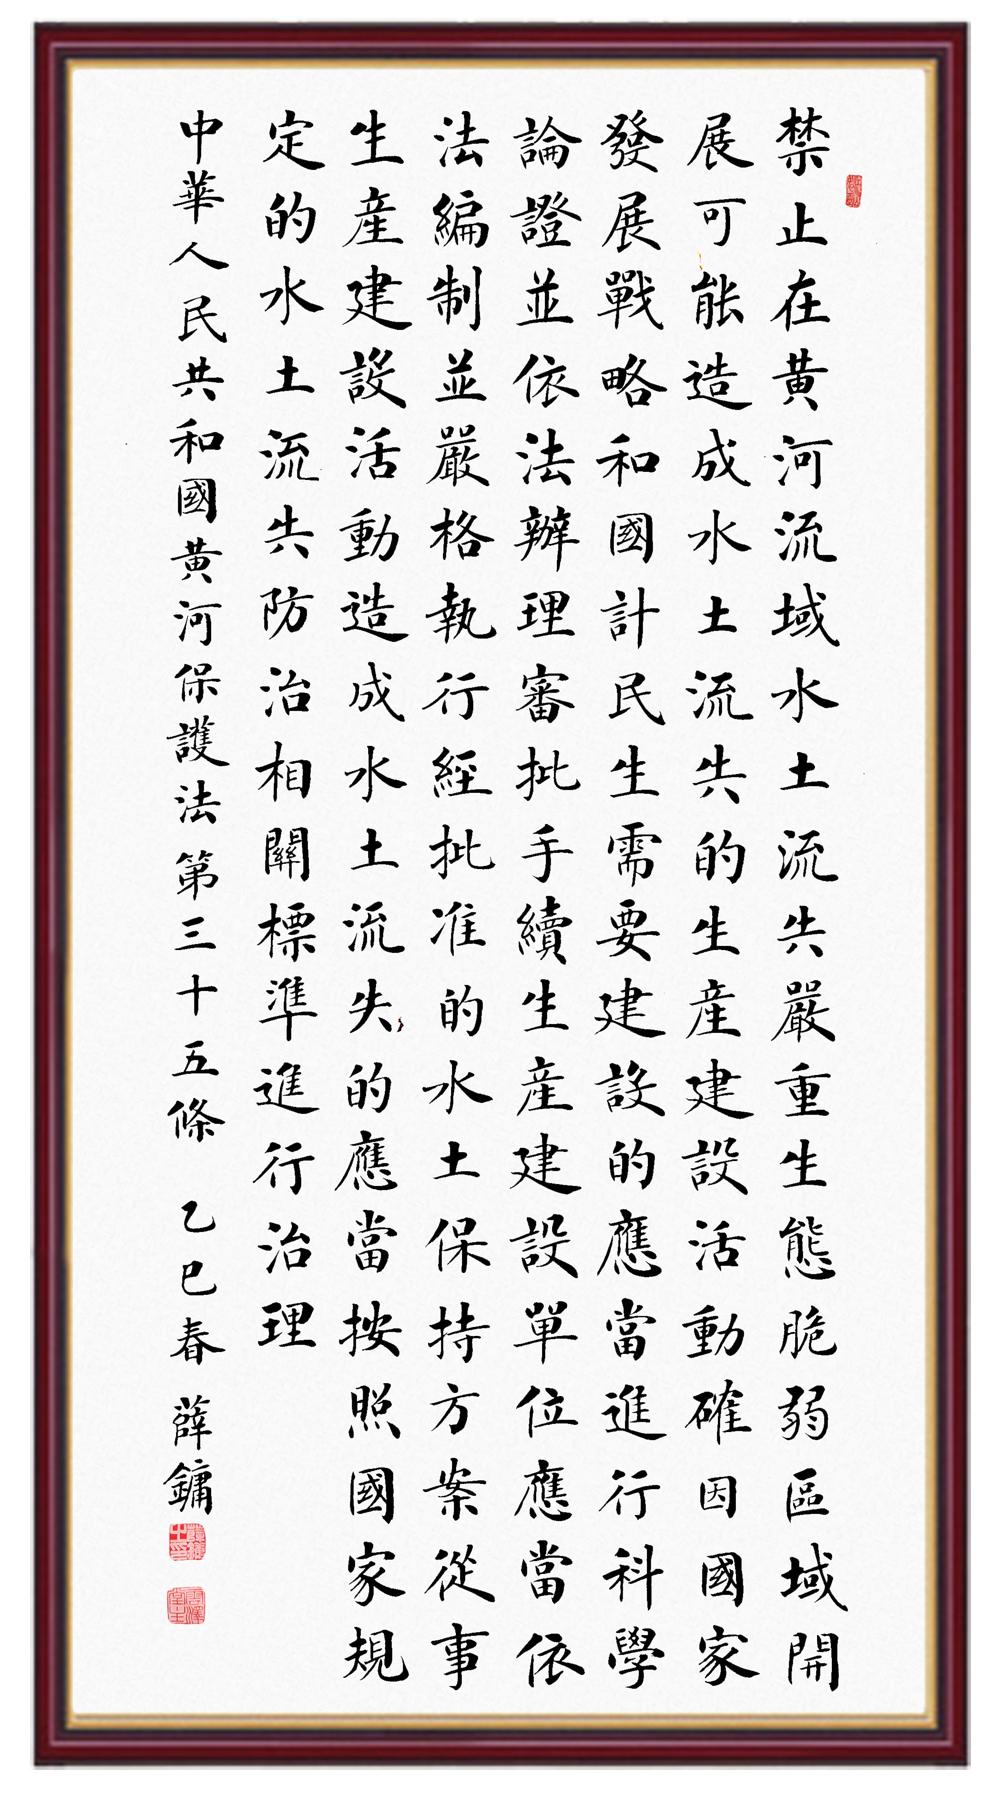 禁止在黄河流域水土流失嚴重生態脆弱區域開
展可能造成水土流失的生産建設活動確因國家
發展戰略和國計民生需要建設的應當進行科學
論證並依法辦理審批手續生産建設單位應當依
法編制並嚴格執行經批准的水土保持方案從事
生産建設活動造成水土流失的應當按照國家規
定的水土流失防治相關標準進行治理
中華人民共和國黄河保護法第三十五條 乙巳春 薛鏞